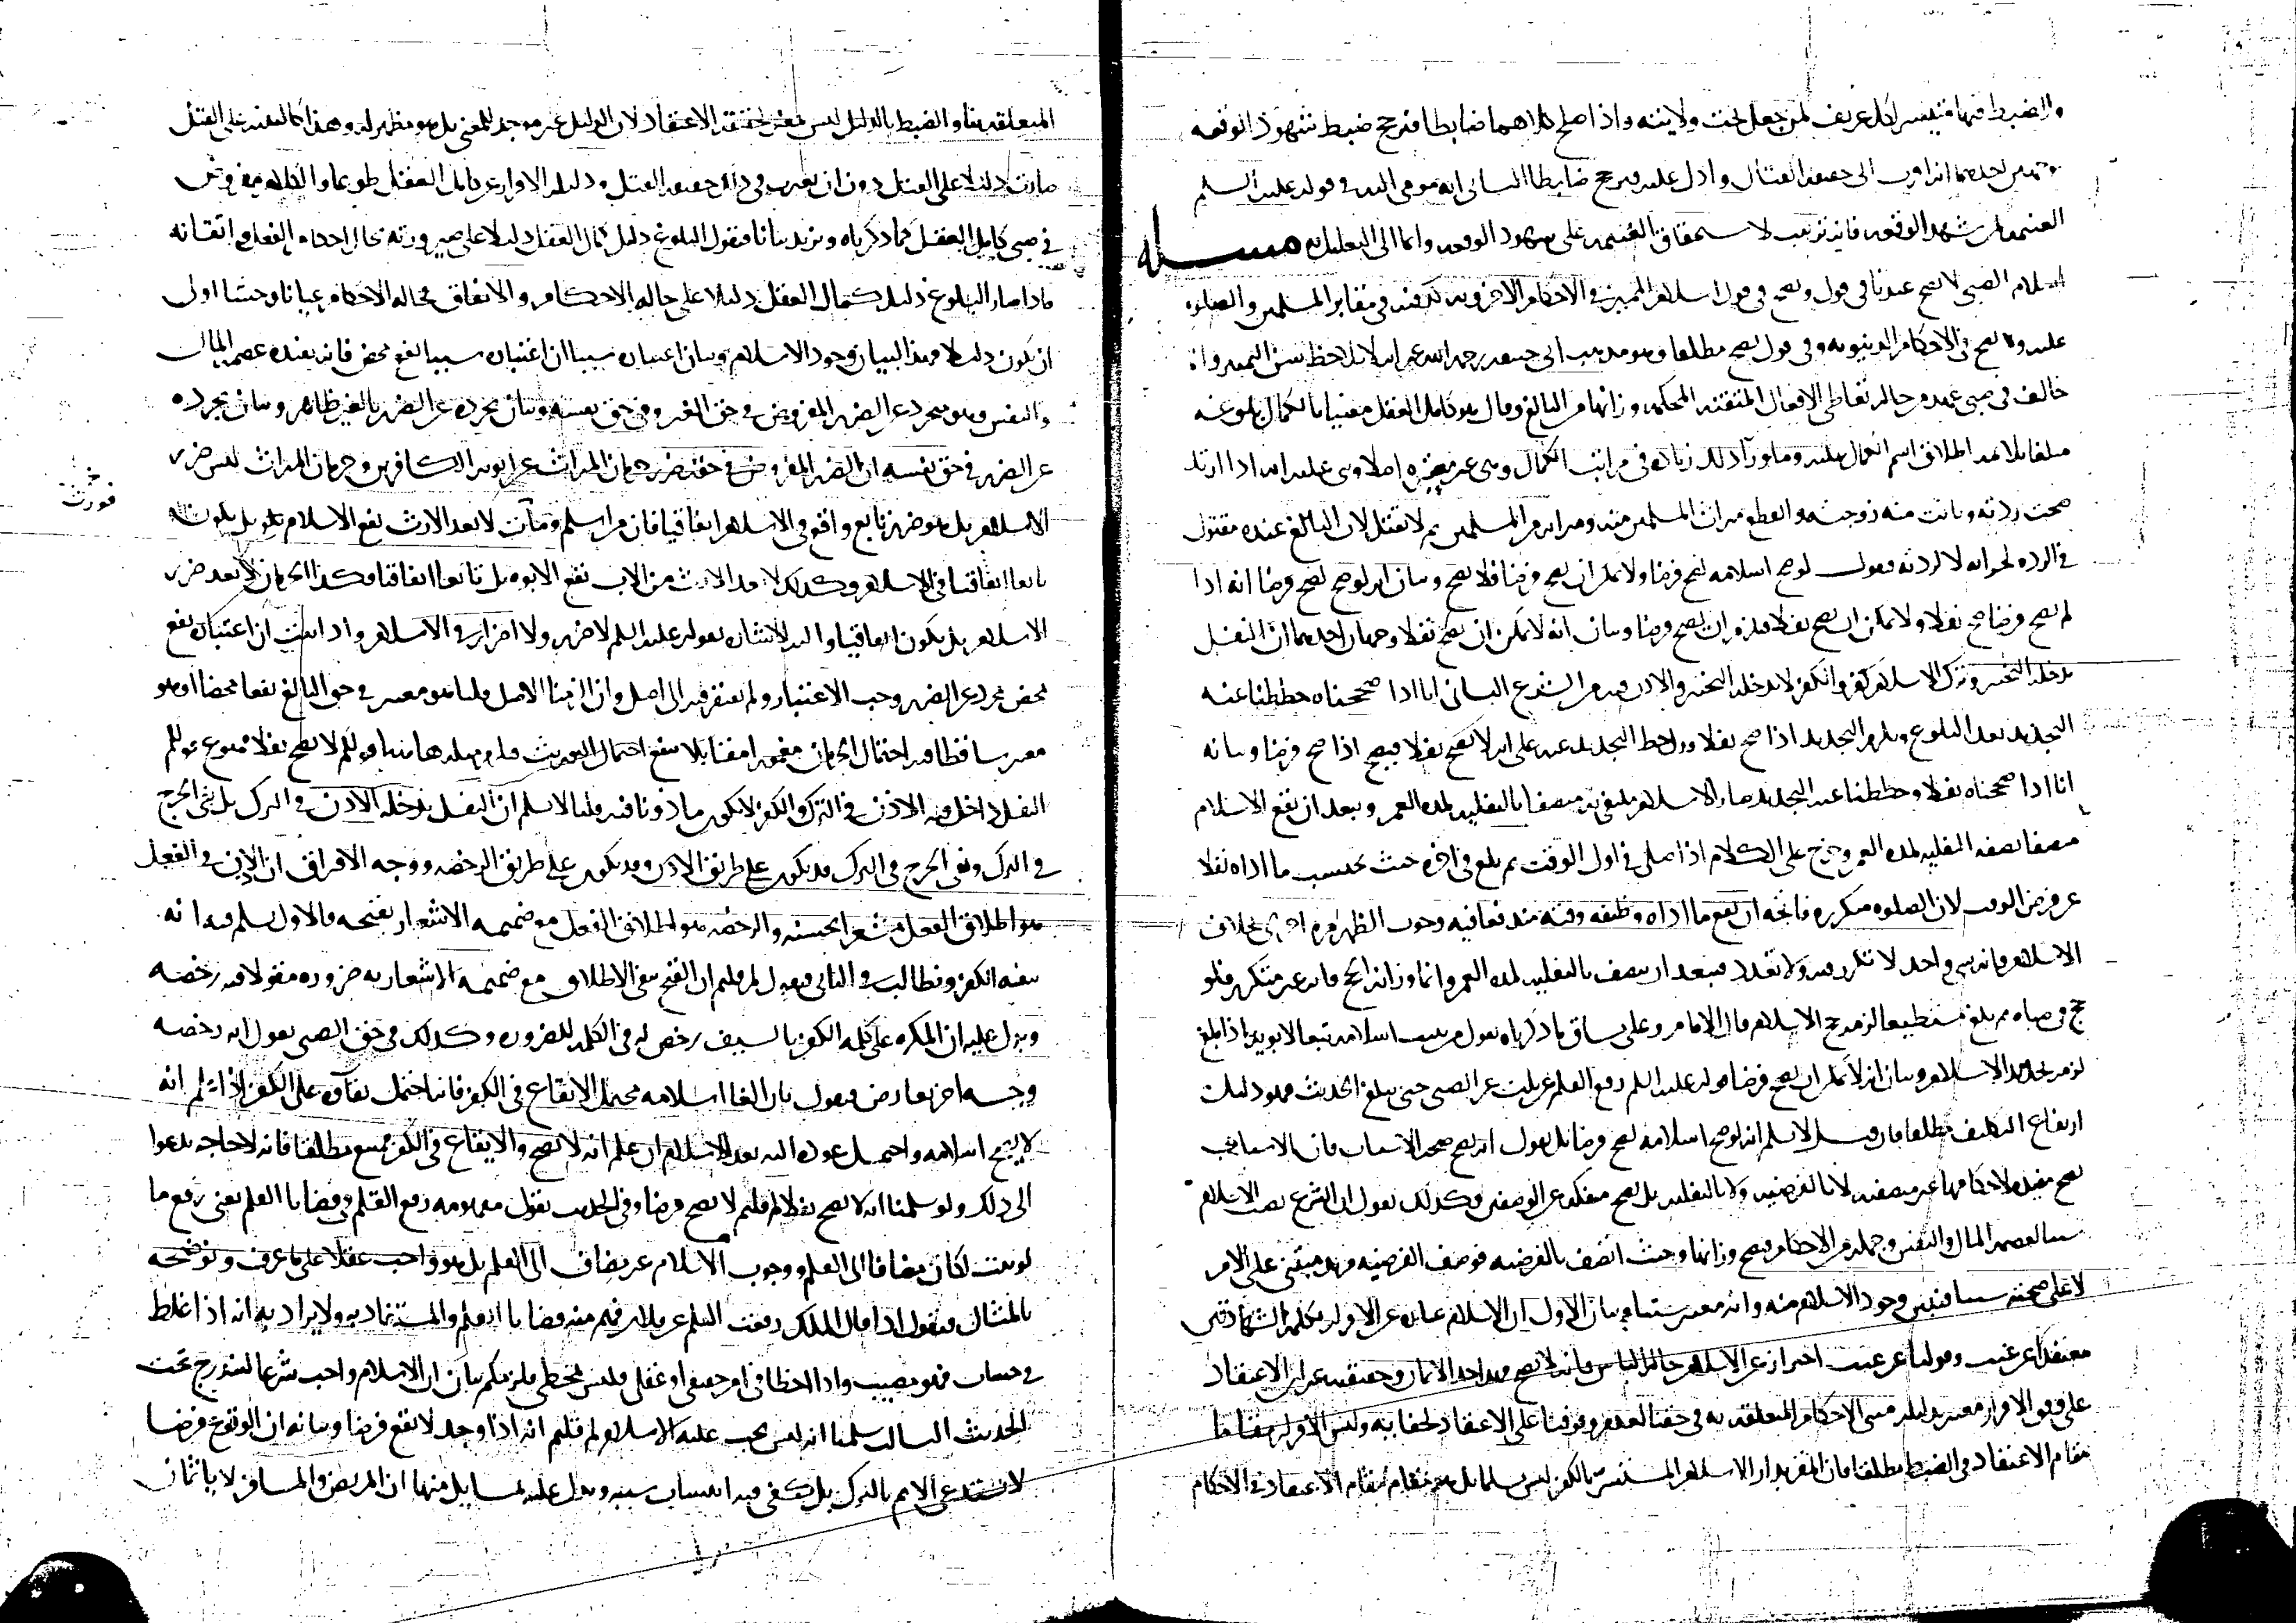 والضبط فيها فتيسر لكل عريف لمن جعل تحت ولايته واذا صلح كلاهما ضابطا فترجح ضبط شهود الوقعه
احدهما انه اقرب الى حصول القتال وادل عليه فترجح ضابطا الثانى انه مومى اليه فى قوله عليه السلم
الغنيمه لمن شهد الوقعه فانه ترتيب لاستحقاق الغنيمه على شهود الوقعه وايما الى التعليل به مسله
اسلام الصبى لا يصح عندنا فى قول ويصح فى قول اسلام المميز فى الاحكام الاخرويه كدفنه فى مقابر المسلمين والصلوه
عليه ولا يصح فى الاحكام الدنيويه وفى قول يصح مطلقا وهو مذهب ابى حنيفه رحمه الله غير انه لا يلاحظ سن التمييز وانه
خالف فى صبى عهد من حاله تعاطى الافعال المتقنه المحكمه وزانها من البالغ وقال هو كامل العقل مغنيا بالكمال بلوغه
مبلغا بلا مه اطلاق اسم الكمال عليه وما ورآ ذلك زياده فى مراتب الكمال وهى غير معتبره اصلا وبنى عليه انه اذا ارتد
صحت ردته وبانت منه زوجته وانقطع ميراث المسلمين منه وميراثه من المسلمين ثم لا يقتل لان البالغ عنده مقتول
فى الرده لحرابه لا لردته فنقول لو صح اسلامه لصح فرضا ولا يمكن ان يصح فرضا فلا يصح وبيان انه لو صح لصح فرضا انه اذا
لم يصح فرضا صح نفلا ولا يمكن ان يصح نفلا فلزم ان يصح فرضا وبيان انه لا يمكن ان يصح نفلا وجهان احدهما ان النفل
يدخله التخيير وترك الاسلام كفر والكفر لا يدخله التخيير والاذن فيه من الشرع الثانى انا اذا صححناه حططنا عنه
التجديد بعد البلوغ ويلزم التجديد اذا صح نفلا وحط التجديد عنه على انه لا يصح نفلا فيصح اذا صح فرضا وبيانه
انا اذا صححناه نفلا وحططنا عنه التجديد صار الاسلام متصفا بالنفليه لمده العمر وبعد ان يقع الاسلام
متصفا بصفه النفليه لمده العمر وخرج على الكلام اذا صلى فى اول الوقت ثم بلغ فى اخره حيث يحتسب ما اداه نفلا
عن فرض الوقت لان الصلوه متكرره فاتجه ان يقع ما اداه وظيفه وقته مندفعا فيه وجوب الظهر مره اخرى بخلاف
الاسلام فانه شى واحد لا تكرر فيه ولا تعدد فيبعد ان يتصف بالنفليه لمده العمر وانما وزانه الحج فانه غير متكرر فلو
حج فى صباه ثم بلغ مستطيعا لزمه حج الاسلام قال الامام وعلى مساق ما ذكرناه نقول من يثبت اسلامه تبعا لابويه اذا بلغ
لزمه تجديد الاسلام وبيان انه لا يمكن ان يصح فرضا قوله عليه السلم رفع القلم عن ثلث عن الصبى حتى يبلغ الحديث فهو دليل
ارتفاع التكليف مطلقا فان قيل لا نسلم انه لو صح اسلامه لصح فرضا بل نقول انه يصح صحه الاسباب فان الاسباب
تصح مفيده لاحكامها غير متصفه لا بالفرضيه ولا بالنفليه بل تصح منفكه عن الوصفين وكذلك نقول ان الشرع نصب الاسلام
سببا لعصمه المال والنفس وجمله من الاحكام فيصح وزانها وحيث اتصف بالفرضيه فوصف الفرضيه فيه مبتنى على الامر
لا على صحته سببا فنبين وجود الاسلام منه وانه معتبر سببا وبيان الاول ان الاسلام عباره عن الاقرار بكلمه الشهادتين
معتقدا عن غيب وقولنا عن غيب احتراز عن الاسلام حاله الباس فانه لا يصح فهذا حد الايمان وحقيقته غير ان الاعتقاد
على وفق الاقرار معتبر بدليله مبنى الاحكام المتعلقه به فى حقنا لعدم وقوفنا على الاعتقاد لخفايه وليس الاقرار مقاما
مقام الاعتقاد فى الضبط مطلقا فان المقر بدار الاسلام المستسر بالكفر ليس مسلما بل هو مقام مقام الاعتقاد فى الاحكام
المتعلقه بنا والضبط بالدليل ليس بمغير لحقيقه الاعتقاد لان الدليل غير موجد للمعنى بل هو مظهر له وهذا كالبينه على القتل
صارت دليلا على القتل دون ان يغير فى ذلك حقيقه القتل ودليله الاقرار عن كامل العقل طوعا والكلام مفروض
فى صبى كامل العقل كما ذكرناه ونزيد بيانا فنقول البلوغ دليل كمال العقل دليلا على صيرورته بحال احكام الفعل واتقانه
فاذا صار البلوغ دليل كمال العقل دليلا على حاله الاحكام والاتقان فحاله الاحكام عيانا وحسا اولى
ان يكون دليلا فهذا لبيان وجود الاسلام وبيان اعتباره سببا ان اعتباره سببا نفع محض فانه يفيده عصمه المال
والنفس وهو مجرد عن الضرر المفروض فى حق الغير وفى حق نفسه وبيان تجرده عن الضرر بالغير ظاهر وبيان تجرده
عن الضرر فى حق نفسه ان الضرر المفروض فى حقه ضرر حرمان الميراث عن ابويه الكافرين وحرمان الميراث ليس ضرر
الاسلام بل هو ضرر تابع واقع فى الاسلام اتفاقيا فان من اسلم ومات لا يعد الارث نفع الاسلام بل يكون
تابعا اتفاقيا فى الاسلام وكذلك لا يعد الارث من الاب نفع الابوه بل تابعا اتفاقيا فكذا الحرمان لا يعد ضرر
الاسلام بل يكون اتفاقيا واليه الاشاره بقوله عليه السلم لا ضرر ولا اضرار فى الاسلام واذا ثبت ان اعتباره نفع
محض مجرد عن الضرر وجب الاعتبار ولم يفتقر فيه الى اصل وان الزمنا الاصل قلنا هو معتبر فى حق البالغ نفعا محضا او هو
معتبر ساقطا فيه احتمال الحرمان مغمورا مقابلا بنفع احتمال التوريث قولكم لا يصح نفلا ممنوع قولكم
النفل داخل فيه الاذن فى الترك والكفر لا يكون ماذونا فيه قلنا لا نسلم ان النفل يدخله الاذن فى الترك بل نفى الحرج
فى الترك ونفى الحرج فى الترك قد يكون على طريق الاذن وقد يكون على طريق الرخصه ووجه الافتراق ان الاذن فى الفعل
هو اطلاق الفعل مشعرا بحسنه والرخصه هو اطلاق الفعل مع ضميمه الاشعار بقبحه فالاول نسلم فيه انه
ينفيه الكفر ونطالب فى الثانى فنقول لم قلتم ان القبح ينفى الاطلاق مع ضميمه الاشعار به ضروره مقولا فيه رخصه
ويدل عليه ان المكره على كلمه الكفر بالسيف رخص له فى الكلمه للضروره وكذلك فى حق الصبى نقول انه رخصه
وجه اخر نعارض فنقول بان الغا اسلامه محتمل الايقاع فى الكفر فانه احتمل بقاؤه على الكفر اذا علم انه
لا يصح اسلامه واحتمل عوده اليه بعد الاسلام ان علم انه لا يصح والايقاع فى الكفر ممتنع مطلقا فانه لا حاجه تدعوا
الى ذلك ولو سلمنا انه لا يصح نفلا لم قلتم لا يصح فرضا وفى الحديث نقول مفهومه رفع القلم فى قضايا القلم يعنى رفع ما
لو ثبت لكان مضافا الى القلم ووجوب الاسلام غير مضاف الى القلم بل هو واجب عقلا على ما عرف ونوضحه
بالمثال فنقول اذا قال الملك رفعت القلم عن فلان فهم منه قضايا القلم والمستفاد به ولا يراد به انه اذا غلط
فى حساب فهو مصيب واذا اخطا فى امر حقيقى او عقلى فليس بمخطى فلزمكم بيان ان الاسلام واجب شرعا ليندرج تحت
الحديث الثالث سلمنا انه ليس يجب عليه الاسلام لم قلتم انه اذا وجد لا يقع فرضا وبيانه ان الوقوع فرضا
لا يستدعى الاثم بالترك بل يكفى فيه انتساب سببه ويدل عليه مسايل منها ان المريض والمسافر لا ياثمان
فورث